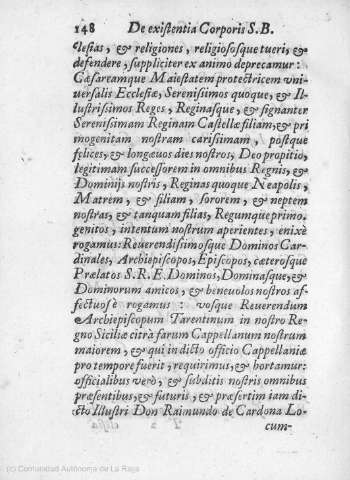 148 De existentia Corporis S. B.
lesias, & religiones, religiososque tueri, &
defendere, suppliciter ex animo deprecamur:
Cæsareamque Maiestatem protectricem vni-
uersalis Ecclesiæ, Serenissimos quoque, & Il-
lustrissimos Reges, Reginasque, & signanter
Serenissimam Reginam Castellæ filiam, & pri
mogenitam nostram carissimam, postque
felices, & longæuos dies nostros, Deo propitio,
legitimam successorem in omnibus Regnis, &
Dominijs nostris, Reginas quoque Neapolis,
Matrem, & filiam, sororem, & neptem
nostras, & tanquam filias, Regumque primo
genitos, intentum nostrum aperientes, enixè
rogamus: Reuerendissimosque Dominos Car-
dinales, Archiepiscopos, Episcopos, cæterosque
Prælatos S. R. E. Dominos, Dominasque, &
Dominorum amicos, & beneuolos nostros af-
fectuosè rogamus : vosque Reuerendum
Archiepiscopum Tarentinum in nostro Re-
gno Siciliæ citrà farum Cappellanum nostrum
maiorem, & qui in dicto officio Cappellaniæ
pro tempore fuerit, requirimus, & hortamur:
officialibus verò, & subditis nostris omnibus
præsentibus, & futuris, & præsertim tam di-
cto Illustri Don Raimundo de Cardona Lo-
cum-
(c) Comunidad Autónoma de La Rioja